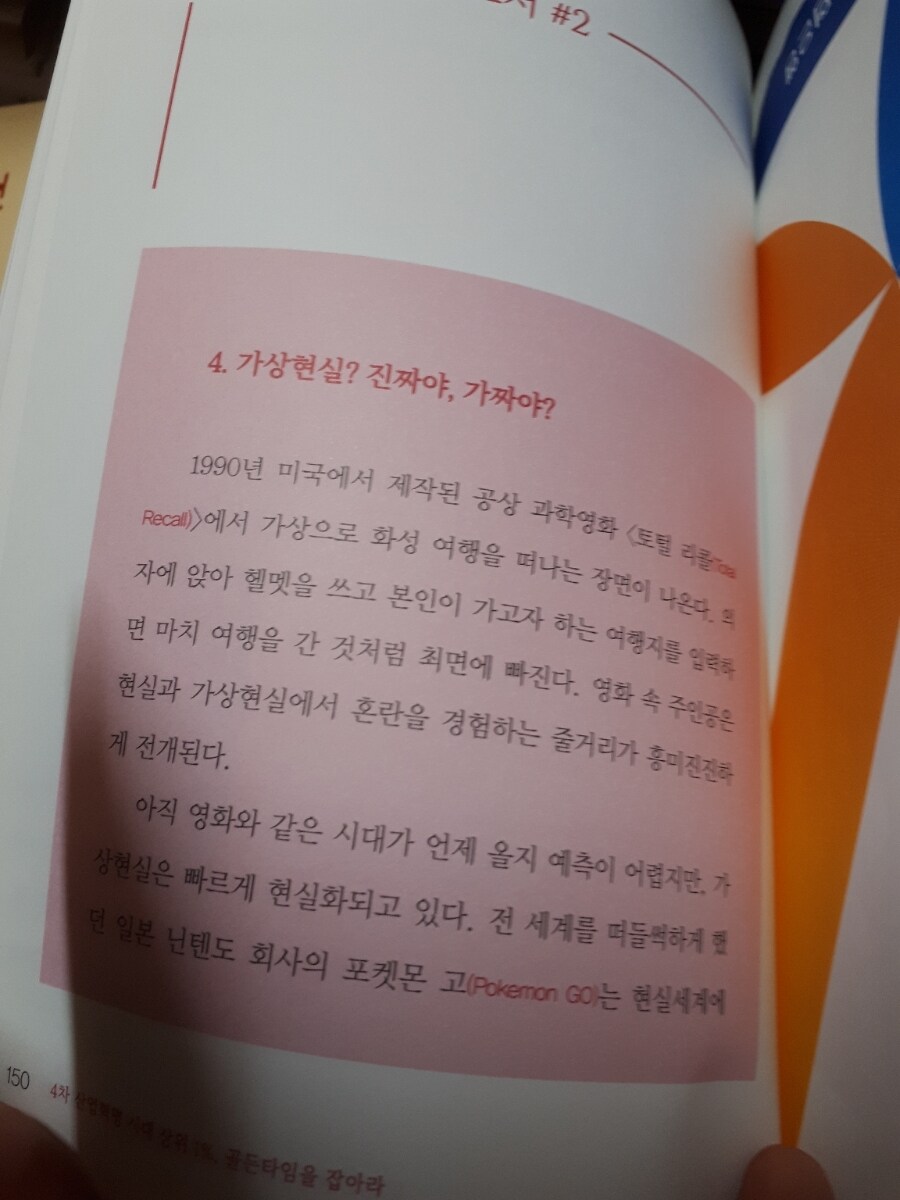 #2
4. 가상현실? 진짜야, 가짜야?
1990년 미국에서 제작된 공상 과학영화 〈토털 리콜(Total
Recall)〉에서 가상으로 화성 여행을 떠나는 장면이 나온다. 의
자에 앉아 헬멧을 쓰고 본인이 가고자 하는 여행지를 입력하
면 마치 여행을 간 것처럼 최면에 빠진다. 영화 속 주인공은
현실과 가상현실에서 혼란을 경험하는 줄거리가 흥미진진하
게 전개된다.
아직 영화와 같은 시대가 언제 올지 예측이 어렵지만, 가
상현실은 빠르게 현실화되고 있다. 전 세계를 떠들썩하게 했
던 일본 닌텐도 회사의 포켓몬 고(Pokemon GO)는 현실세계에
150
4차 산업혁명 시대 상위 1%, 골든타임을 잡아라